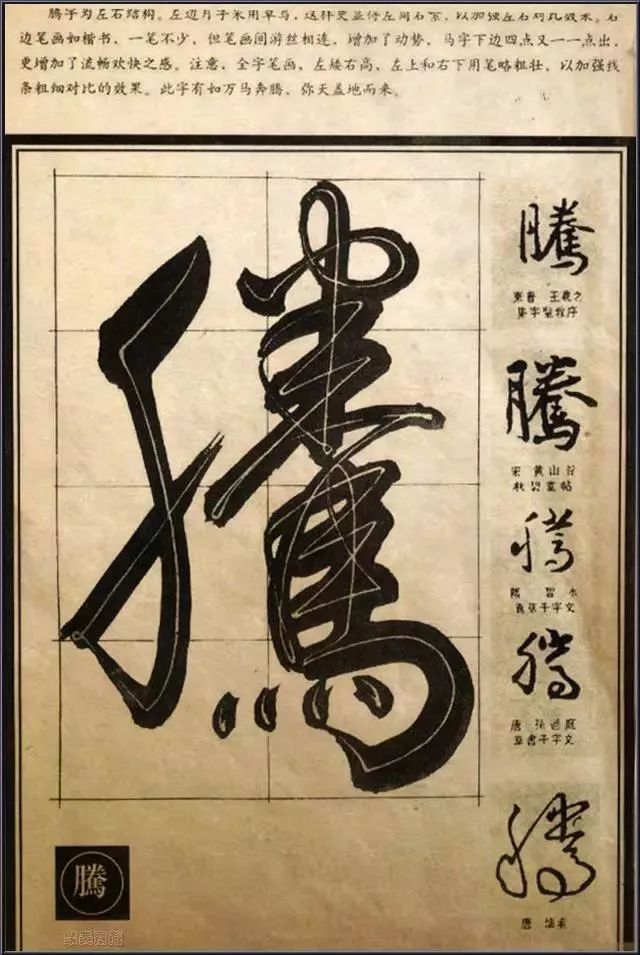 腾字为左右结构。左边月字采用草写，这样更显得左简右繁，以加强左右对比效果。右
边笔画如楷书、一笔不少，但笔画间游丝相连，增加了动势，马字下边四点又一一点出、
更增加了流畅欢快之感。注意、全字笔画、左矮右高、左上和右下用笔略粗壮、以加强线
条粗细对比的效果。此字有如万马奔腾、弥天盖地而来。
騰
騰
東晋 王羲之
集字聖教序
騰
宋 黄山谷
秋碧堂帖
騰
隋 智永
真草千字文
騰
唐 孫過庭
草書千字文
騰
唐 懷素
騰